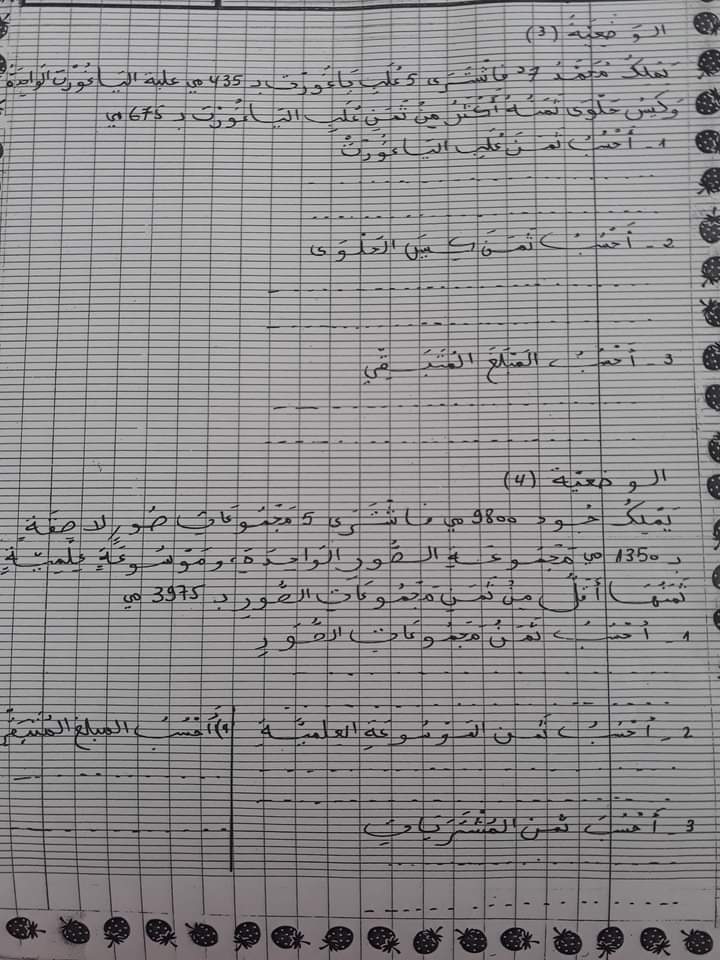 الوضعيّة (3)
يَمْلِكُ مُحَمَّدُ 7د فاشْتَرَى 5 عُلَب يَاغُورْت بـ 435 مي علبة اليَاغُورْت الوَاحِدَة
وَكِيسَ حَلْوَى ثَمَنُهُ أَكْثَرُ مِنْ ثَمَنِ عُلَبِ اليَاغُورْت بـ 675 مي
1- أَحْسُبُ ثَمَنَ عُلَبِ اليَاغُورْتْ
2- أَحْسُبُ ثَمَنَ كِيسِ الحَلْوَى
3- أَحْسُبُ المَبْلَغَ المُتَبَقِّي
الوضعيّة (4)
يَمْلِكُ 9800 مي فاشْتَرَى 5 مَجْمُوعَاتِ صُوَرٍ لاصِقَةٍ
بـ 1350 مي مَجْمُوعَةِ الصُّورِ الوَاحِدَةِ، وَمَوْسُوعَةٍ عِلْمِيّةٍ
ثَمَنُهَا أَقَلُّ مِنْ ثَمَنِ مَجْمُوعَاتِ الصُّوَرِ بـ 3975 مي
1- أَحْسُبُ ثَمَنَ مَجْمُوعَاتِ الصُّوَرِ
2- أَحْسُبُ ثَمَن المَوْسُوعَةِ العِلْمِيَّة
4) أَحْسُبُ المبلغ المُتَبَقِّي
3- أَحْسُبُ ثمن المُشْتَرَيَاتِ